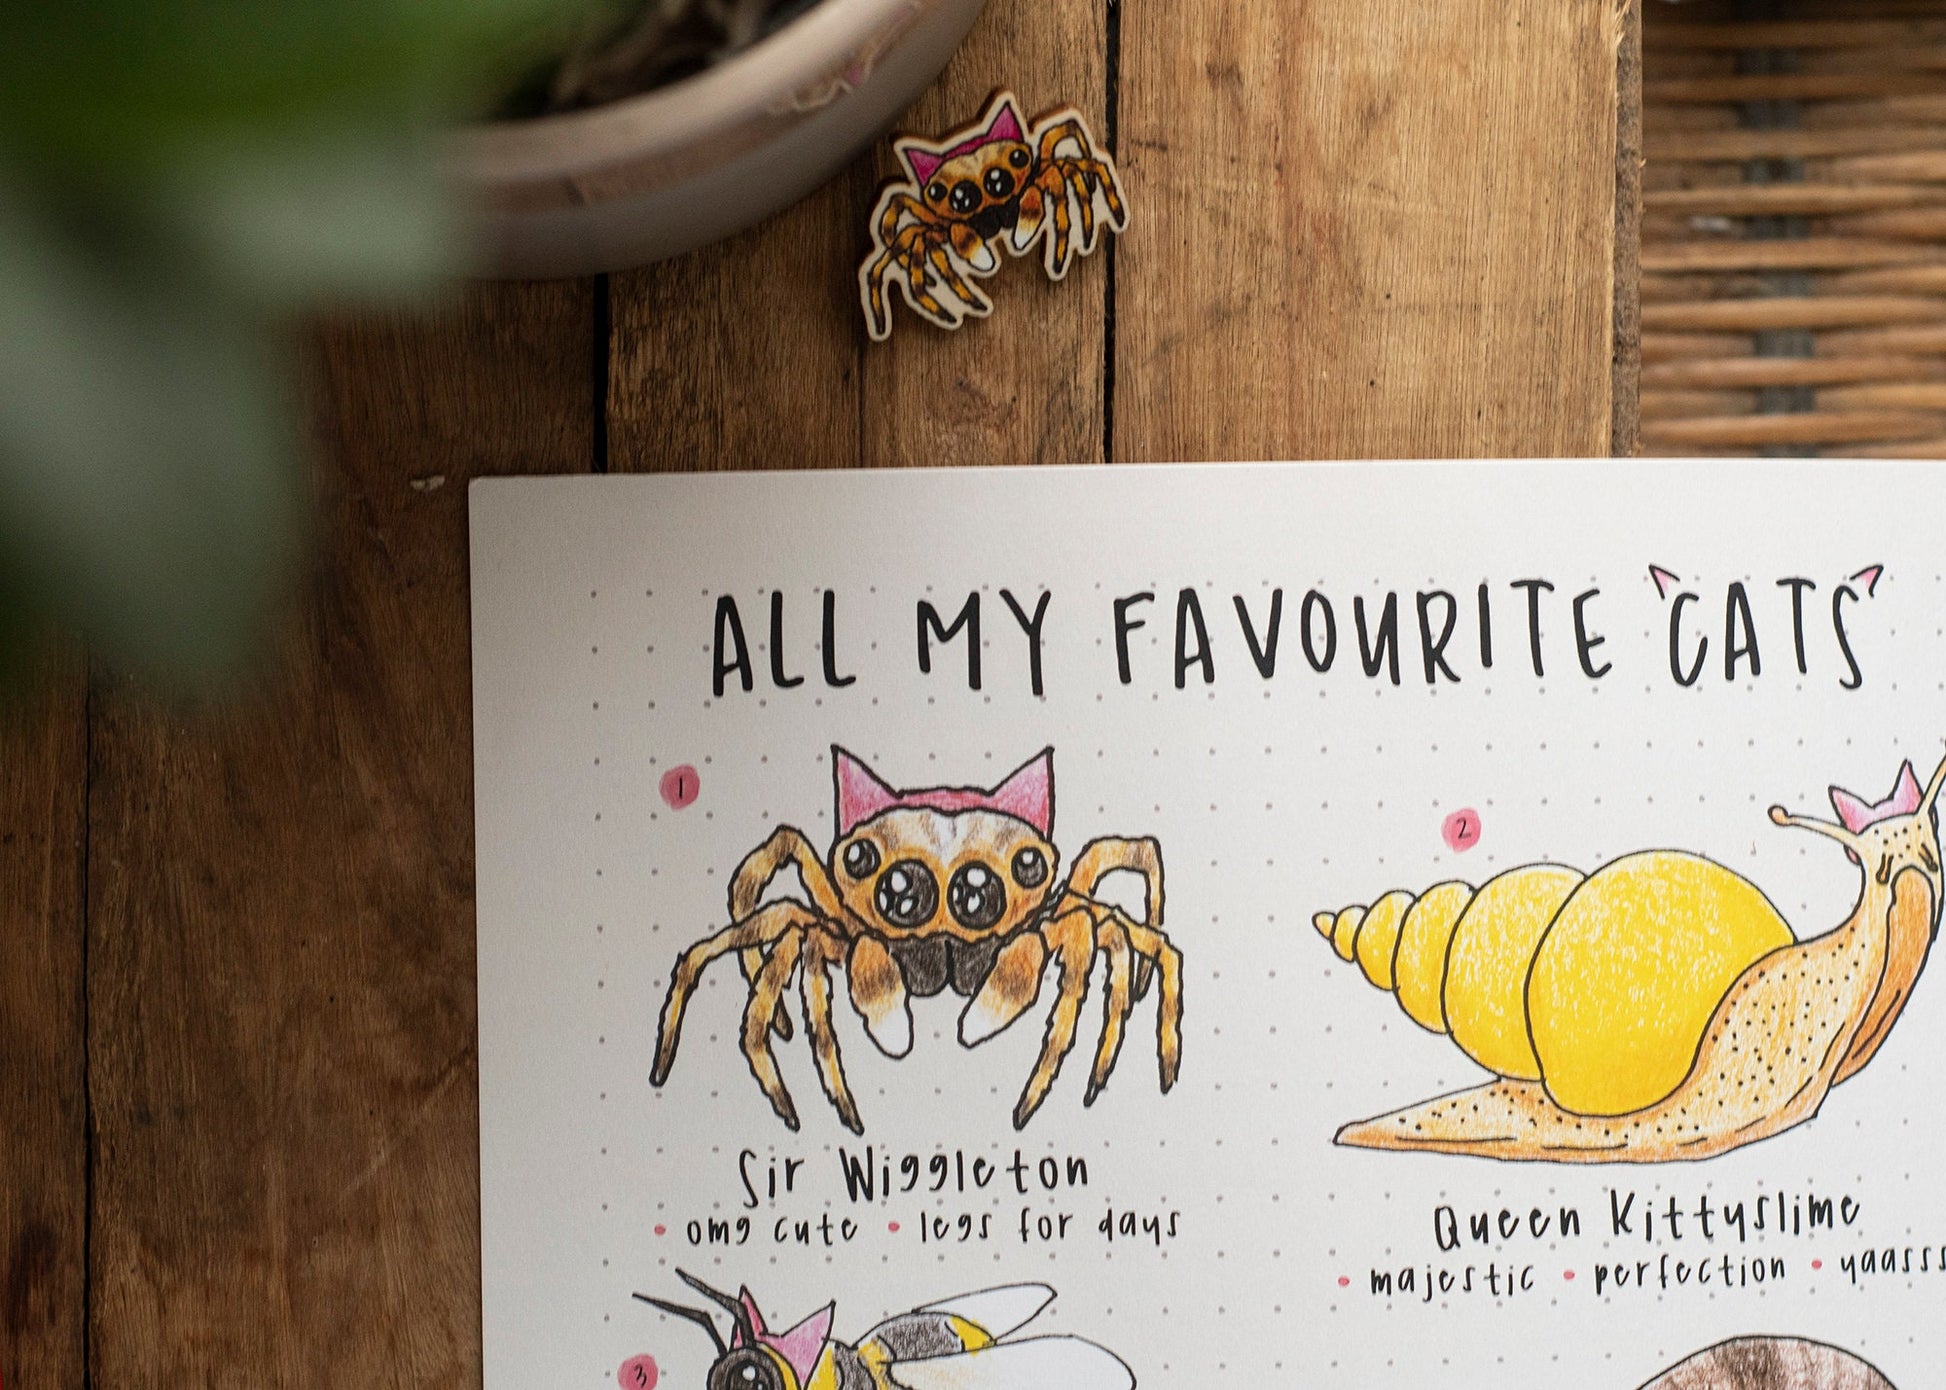 ALL MY FAVOURITE CATS
1
2
Sir Wiggleton
• omg cute • legs for days
Queen Kittyslime
• majestic • perfection • yaasss
3